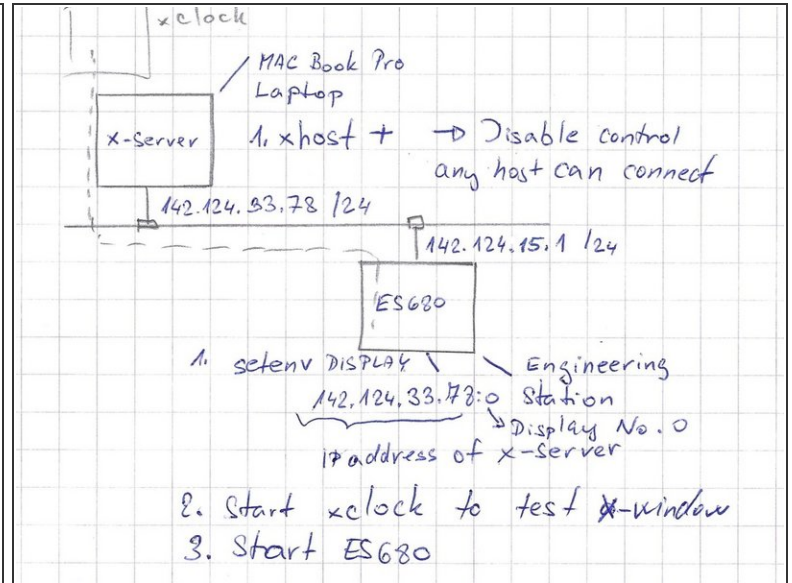 xclock
MAC Book Pro
Laptop
x-Server
1. xhost + → Disable control
any host can connect
142.124.33.78 /24
142.124.15.1 /24
ES680
1. setenv DISPLAY \
142.124.33.78:0
Engineering
Station
Display No. 0
IP address of x-Server
2. Start xclock to test x-window
3. Start ES680